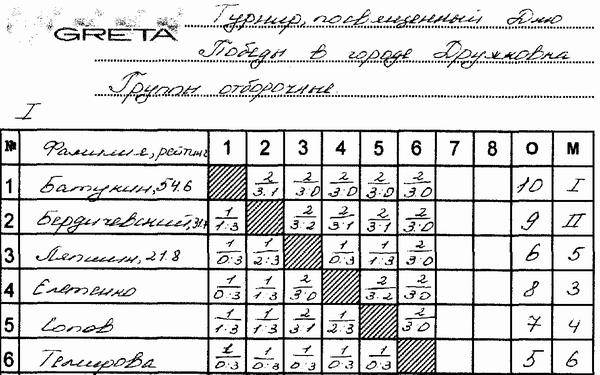 GRETA
Турнир, посвященный Дню
Победы в городе Дружковка
Группы отборочные.
I
№ Фамилие, рейтинг 1 2 3 4 5 6 7 8 О М
1 Батукин, 54.6 2 3:1 2 3:0 2 3:0 2 3:0 2 3:0 10 I
2 Бердичевский, 1 1:3 2 3:2 2 3:1 2 3:1 2 3:0 9 II
3 Ляпшин, 21.8 1 0:3 1 2:3 1 0:3 1 1:3 2 3:0 6 5
4 Елетенко 1 0:3 1 1:3 2 3:0 2 3:2 2 3:0 8 3
5 Сопов 1 1:3 1 1:3 2 3:1 1 2:3 2 3:0 7 4
6 Темирова 1 0:3 1 0:3 1 0:3 1 0:3 1 0:3 5 6